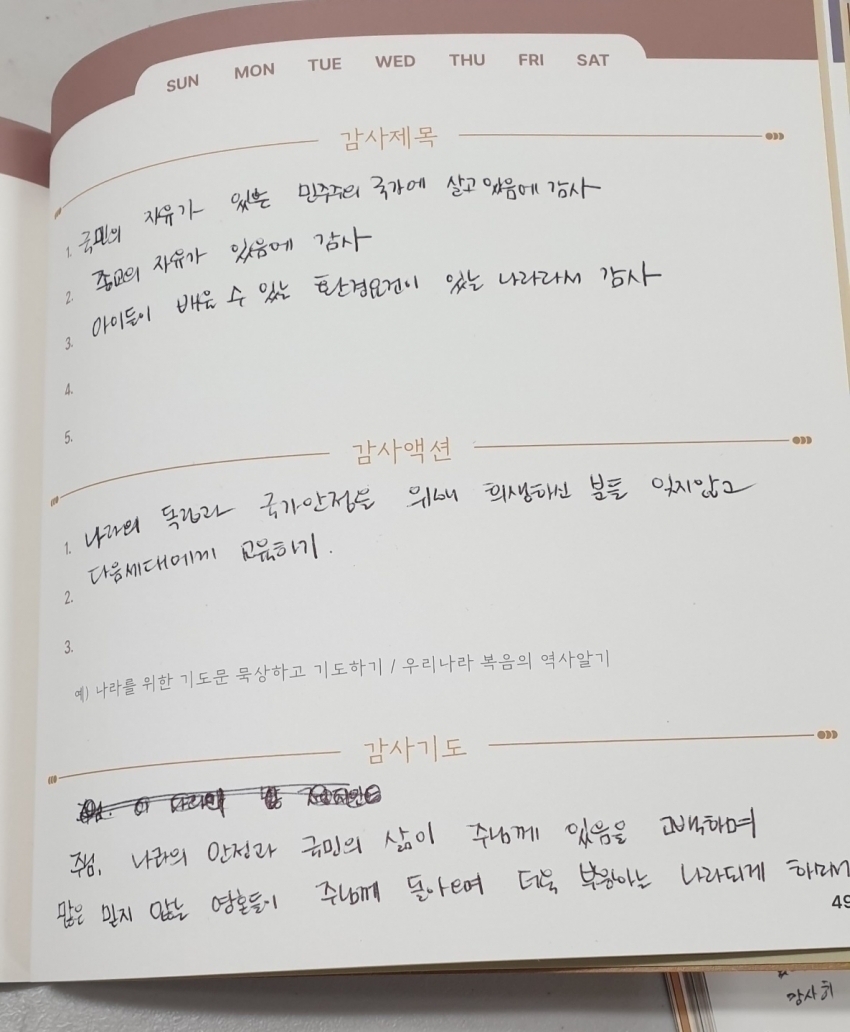 SUN MON TUE WED THU FRI SAT
감사제목
1. 국민의 자유가 있는 민주주의 국가에 살고 있음에 감사
2. 종교의 자유가 있음에 감사
3. 아이들이 배울 수 있는 환경요건이 있는 나라라서 감사
4.
5.
감사액션
1. 나라의 독립과 국가안정을 위해 희생하신 분들 잊지않고
2. 다음세대에게 교육하기.
3.
예) 나라를 위한 기도문 묵상하고 기도하기 / 우리나라 복음의 역사알기
감사기도
주님, 나라의 안정과 국민의 삶이 주님께 있음을 고백하며
많은 믿지 않는 영혼들이 주님께 돌아오며 더욱 부흥하는 나라되게 하여주서
49
감사회